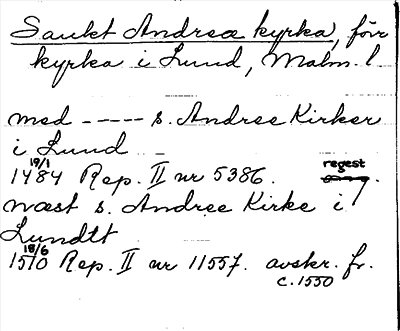 Sankt Andreæ kyrka, förr
kyrka i Lund, Malm. l.
med ----- s. Andree Kirker
i Lund
19/1
1484 Rep. II nr 5386. regest
næst s. Andree Kirke i
Lundtt
18/6
1510 Rep. II nr 11557. avskr. fr.
c. 1550